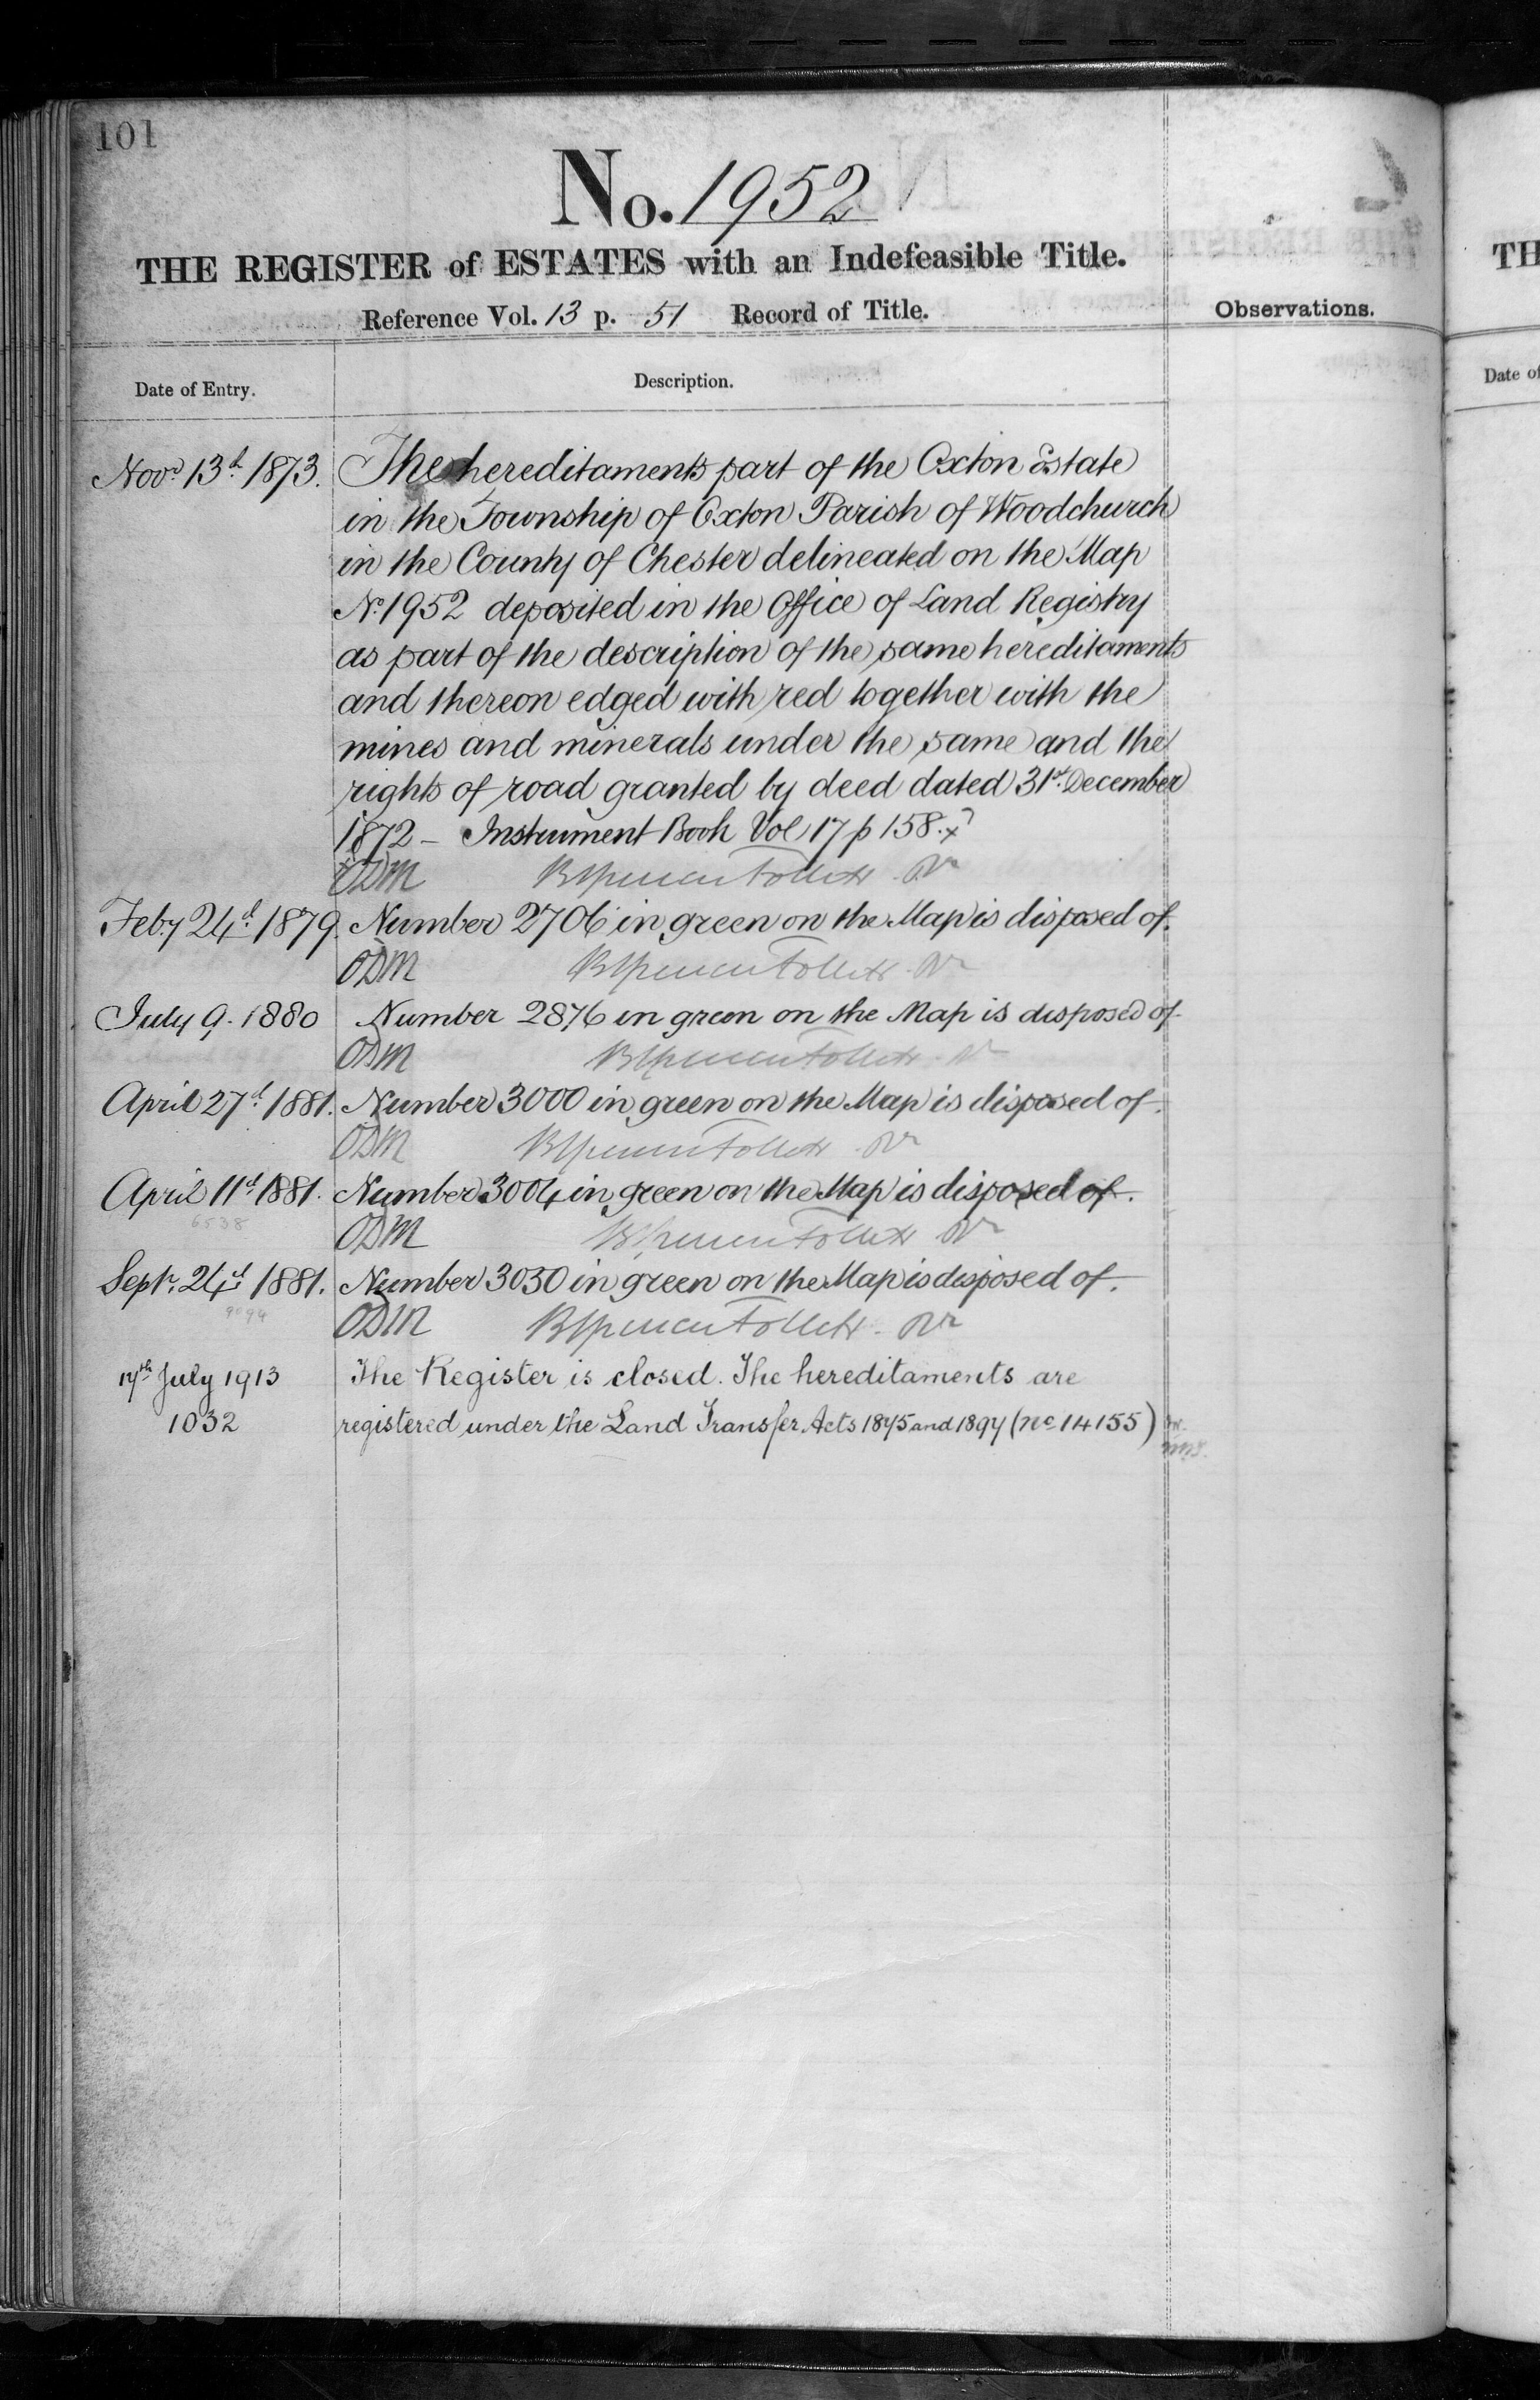 101
No. 1952
THE REGISTER of ESTATES with an Indefeasible Title.
Reference Vol. 13 p. 51 Record of Title.
Observations.
Date of Entry.
Description.
Novr 13th 1873. The hereditaments part of the Oxton Estate
in the Township of Oxton Parish of Woodchurch
in the County of Chester delineated on the Map
No. 1952 deposited in the Office of Land Registry
as part of the description of the same hereditaments
and thereon edged with red together with the
mines and minerals under the same and the
rights of road granted by deed dated 31st December
1872 - Instrument Book Vol 17 p 158.
ODM Brent Spencer Follett
Feby 24th 1879. Number 2706 in green on the Map is disposed of.
ODM
July 9. 1880 Number 2876 in green on the Map is disposed of
ODM
April 27th 1881. Number 3000 in green on the Map is disposed of.
ODM
April 11th 1881. Number 3004 in green on the Map is disposed of.
6538
ODM
Septr. 24th 1881. Number 3030 in green on the Map is disposed of.
9094
ODM
17th July 1913 The Register is closed. The hereditaments are
1032 registered under the Land Transfer Acts 1875 and 1897 (No 14155)
TH
Date of